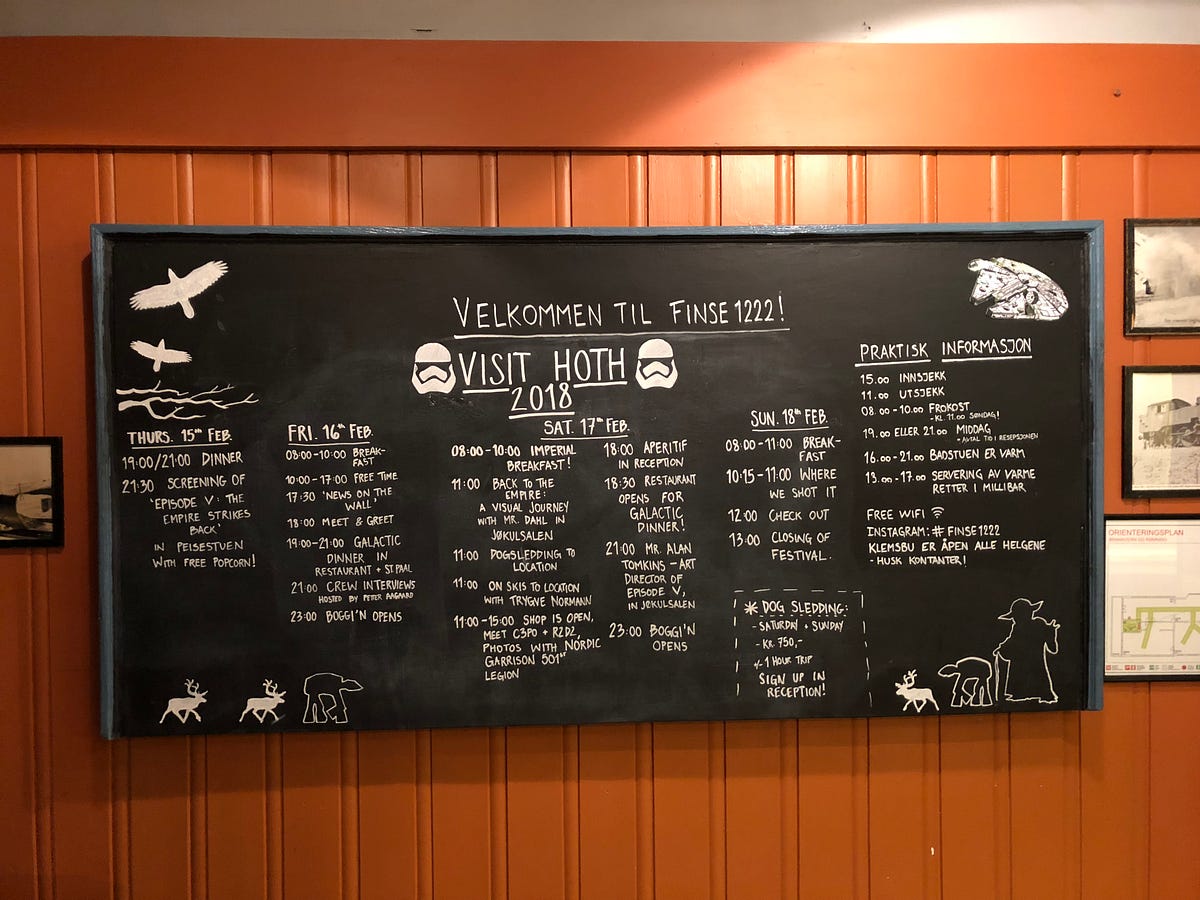 VELKOMMEN TIL FINSE 1222!
VISIT HOTH
2018
THURS. 15th FEB.
19:00/21:00 DINNER
21:30 SCREENING OF
'EPISODE V: THE
EMPIRE STRIKES
BACK'
IN PEISESTUEN
WITH FREE POPCORN!
FRI. 16th FEB.
08:00-10:00 BREAK-
FAST
10:00-17:00 FREE TIME
17:30 'NEWS ON THE
WALL'
18:00 MEET & GREET
19:00-21:00 GALACTIC
DINNER IN
RESTAURANT + ST.PAAL
21:00 CREW INTERVIEWS
HOSTED BY PETER AAGAARD
23:00 BOGGI'N OPENS
SAT. 17th FEB.
08:00-10:00 IMPERIAL
BREAKFAST!
11:00 BACK TO THE
EMPIRE:
A VISUAL JOURNEY
WITH MR. DAHL IN
JØKULSALEN
11:00 DOGSLEDDING TO
LOCATION
11:00 ON SKIS TO LOCATION
WITH TRYGVE NORMANN
11:00-15:00 SHOP IS OPEN,
MEET C3PO + R2D2,
PHOTOS WITH NORDIC
GARRISON 501st
LEGION
18:00 APERITIF
IN RECEPTION
18:30 RESTAURANT
OPENS FOR
GALACTIC
DINNER!
21:00 MR. ALAN
TOMKINS - ART
DIRECTOR OF
EPISODE V,
IN JØKULSALEN
23:00 BOGGI'N
OPENS
SUN. 18th FEB.
08:00-11:00 BREAK-
FAST
10:15-11:00 WHERE
WE SHOT IT
12:00 CHECK OUT
13:00 CLOSING OF
FESTIVAL.
* DOG SLEDDING:
- SATURDAY + SUNDAY
- KR. 750,-
+/- 1 HOUR TRIP
SIGN UP IN
RECEPTION!
PRAKTISK INFORMASJON
15.00 INNSJEKK
11.00 UTSJEKK
08.00-10.00 FROKOST
- KL. 11.00 SØNDAG!
19.00 ELLER 21.00 MIDDAG
- AVTAL TID I RESEPSJONEN
16.00-21.00 BADSTUEN ER VARM
13.00-17.00 SERVERING AV VARME
RETTER I MILLIBAR
FREE WIFI
INSTAGRAM: #FINSE1222
KLEMSBU ER ÅPEN ALLE HELGENE
- HUSK KONTANTER!
ORIENTERINGSPLAN